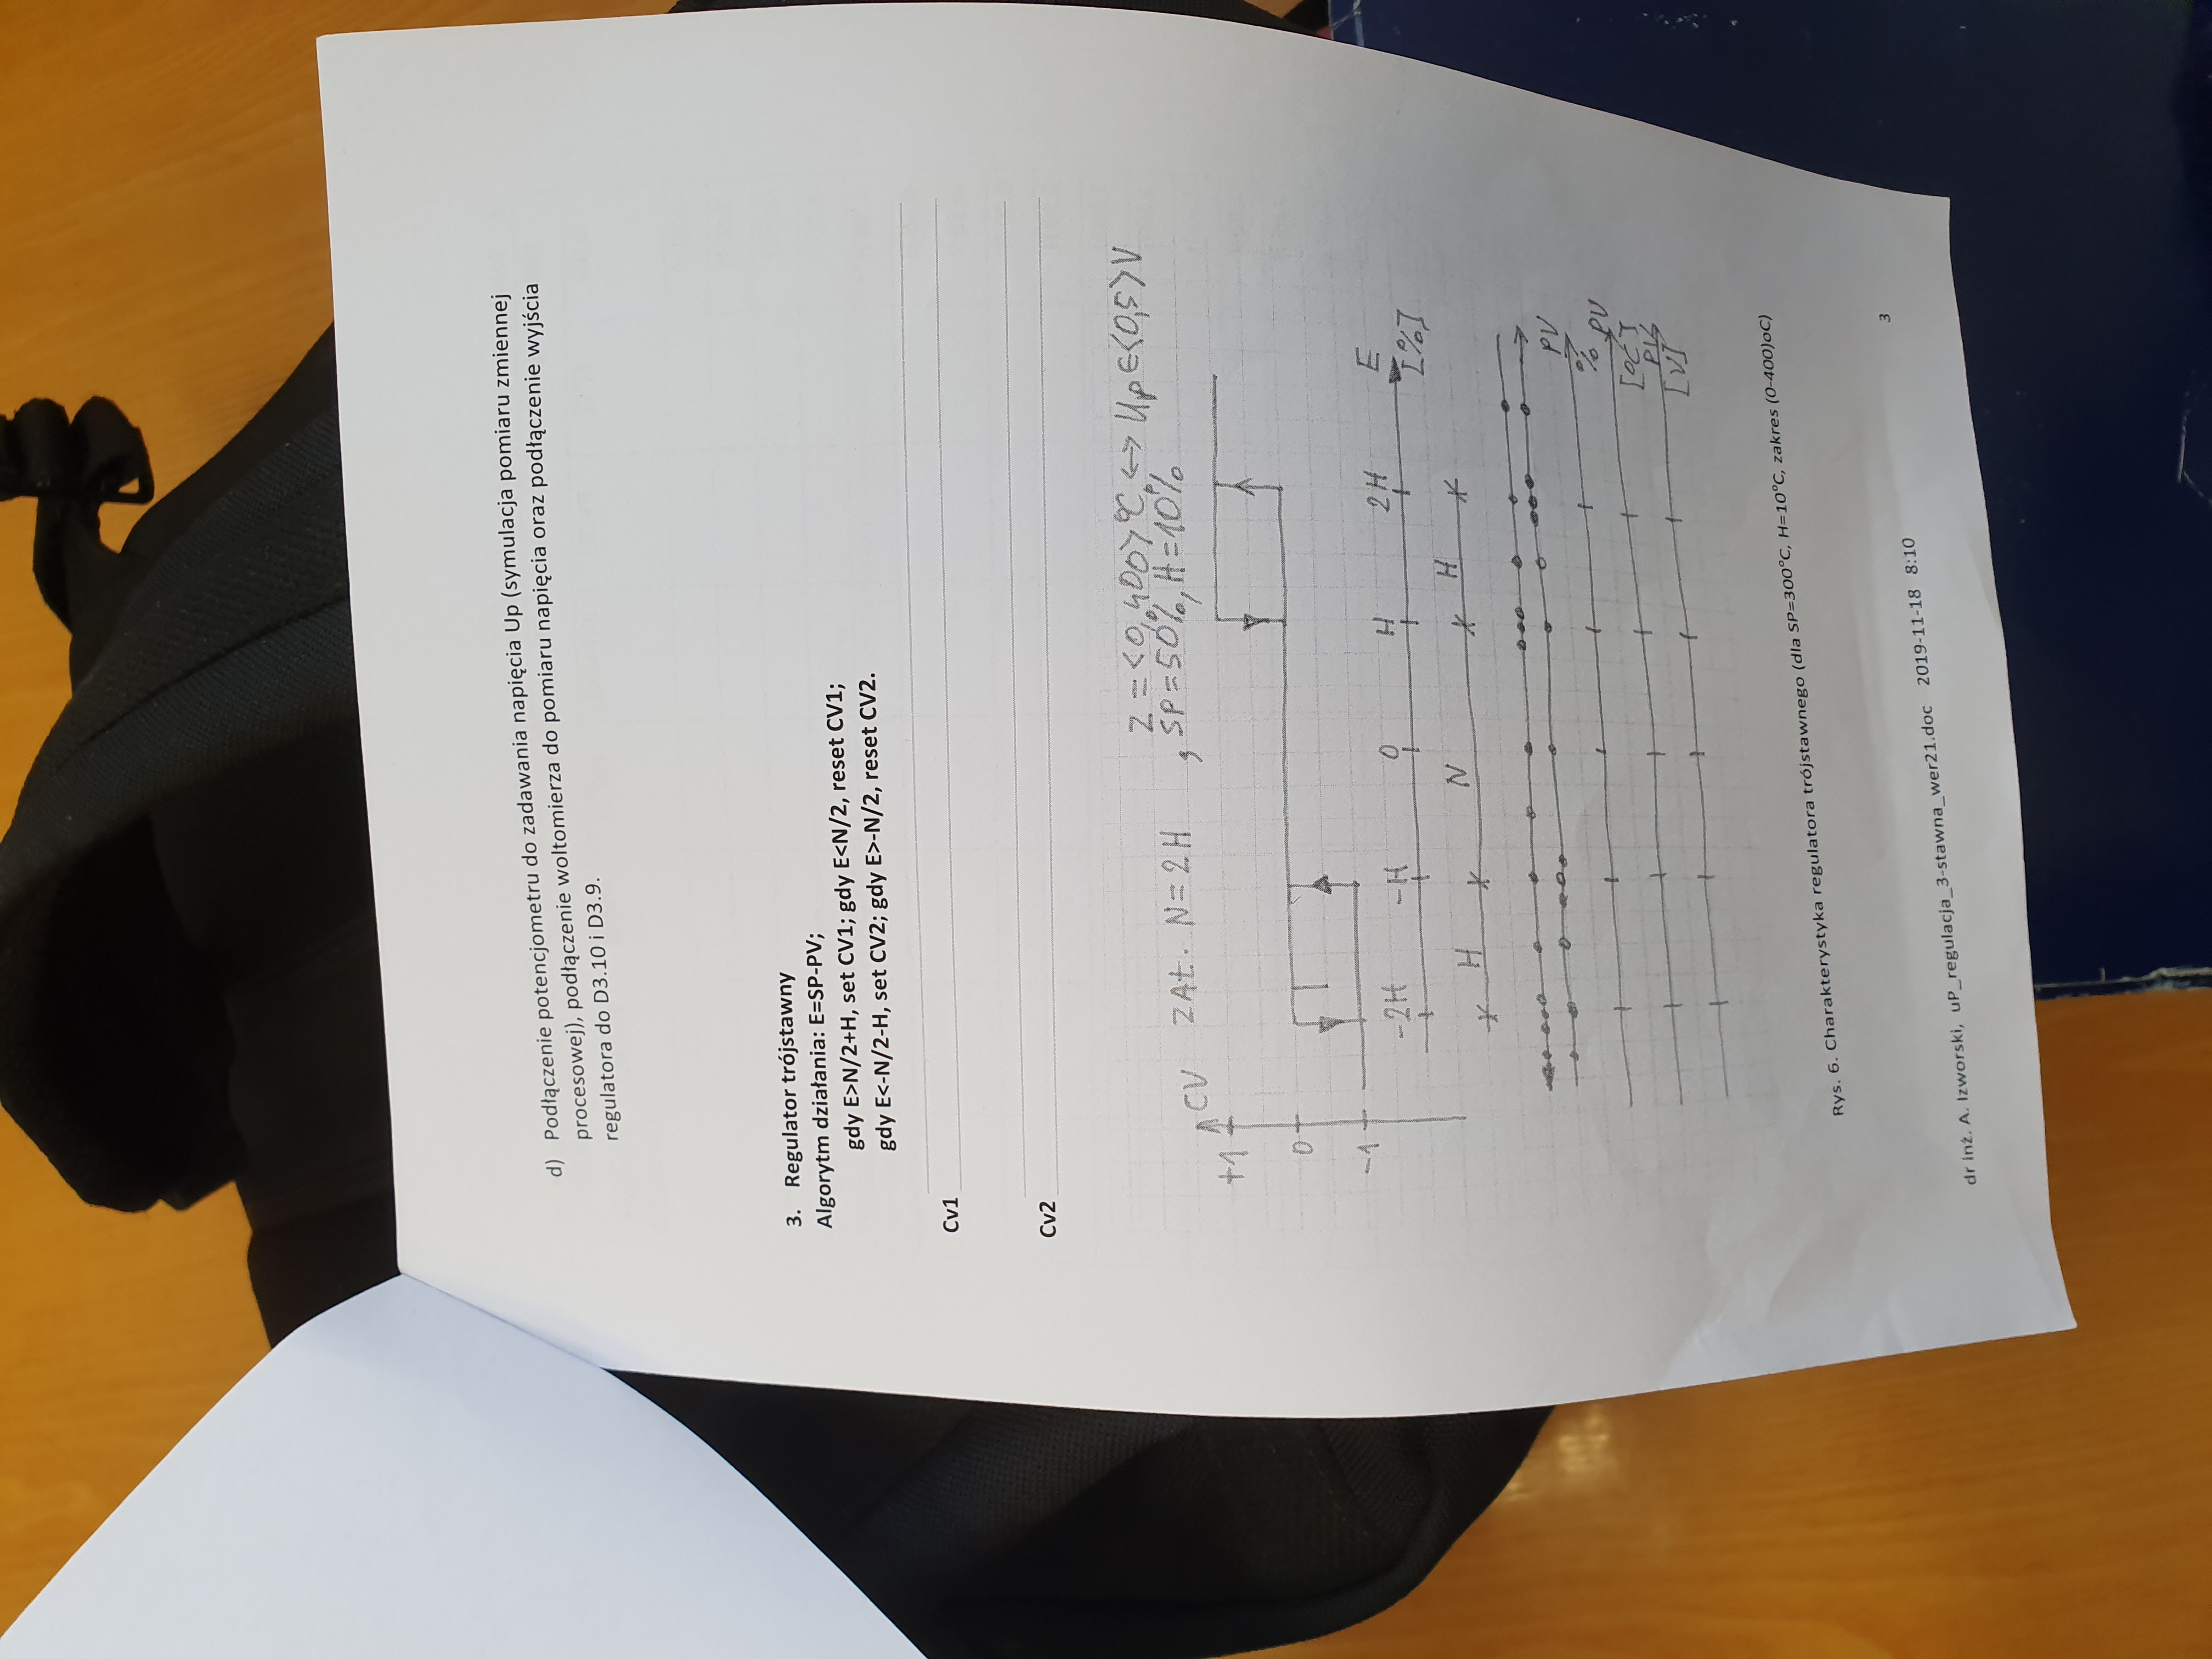 d) Podłączenie potencjometru do zadawania napięcia Up (symulacja pomiaru zmiennej
procesowej), podłączenie woltomierza do pomiaru napięcia oraz podłączenie wyjścia
regulatora do D3.10 i D3.9.
3. Regulator trójstawny
Algorytm działania: E=SP-PV;
gdy E>N/2+H, set CV1; gdy E<N/2, reset CV1;
gdy E<-N/2-H, set CV2; gdy E>-N/2, reset CV2.
Cv1
Cv2
Z = <0,400>°C ↔ Up∈<0,5>V
CV ZAŁ. N=2H , SP=50%, H=10%
+1
0
-1
-2H -H 0 H 2H E
[%]
H N H
PV
%
PV
[°C]
PV
[V]
Rys. 6. Charakterystyka regulatora trójstawnego (dla SP=300°C, H=10°C, zakres (0-400)oC)
3
dr inż. A. Izworski, uP_regulacja_3-stawna_wer21.doc 2019-11-18 8:10